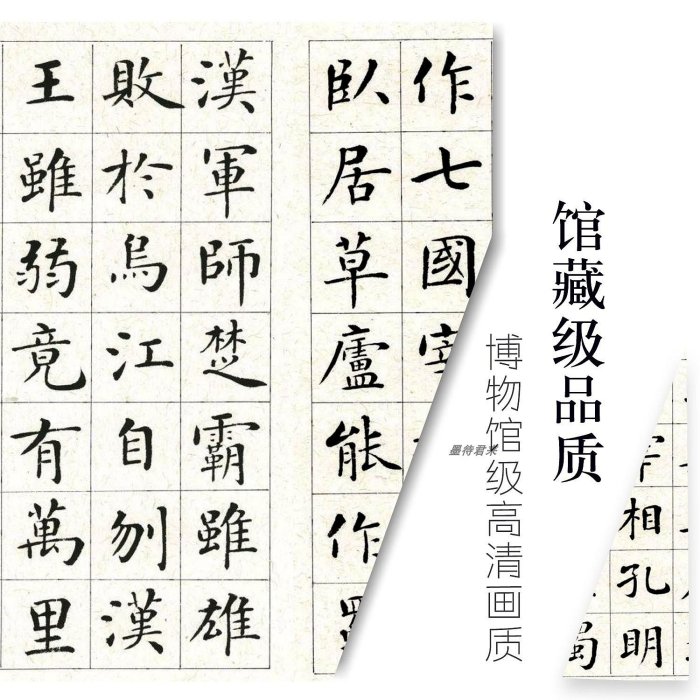 作七國
臥居草廬能作蜀
漢軍師楚霸雖雄
敗於烏江自刎漢
王雖弱竟有萬里
馆藏级品质
博物馆级高清画质
墨待君来
相孔明
蜀